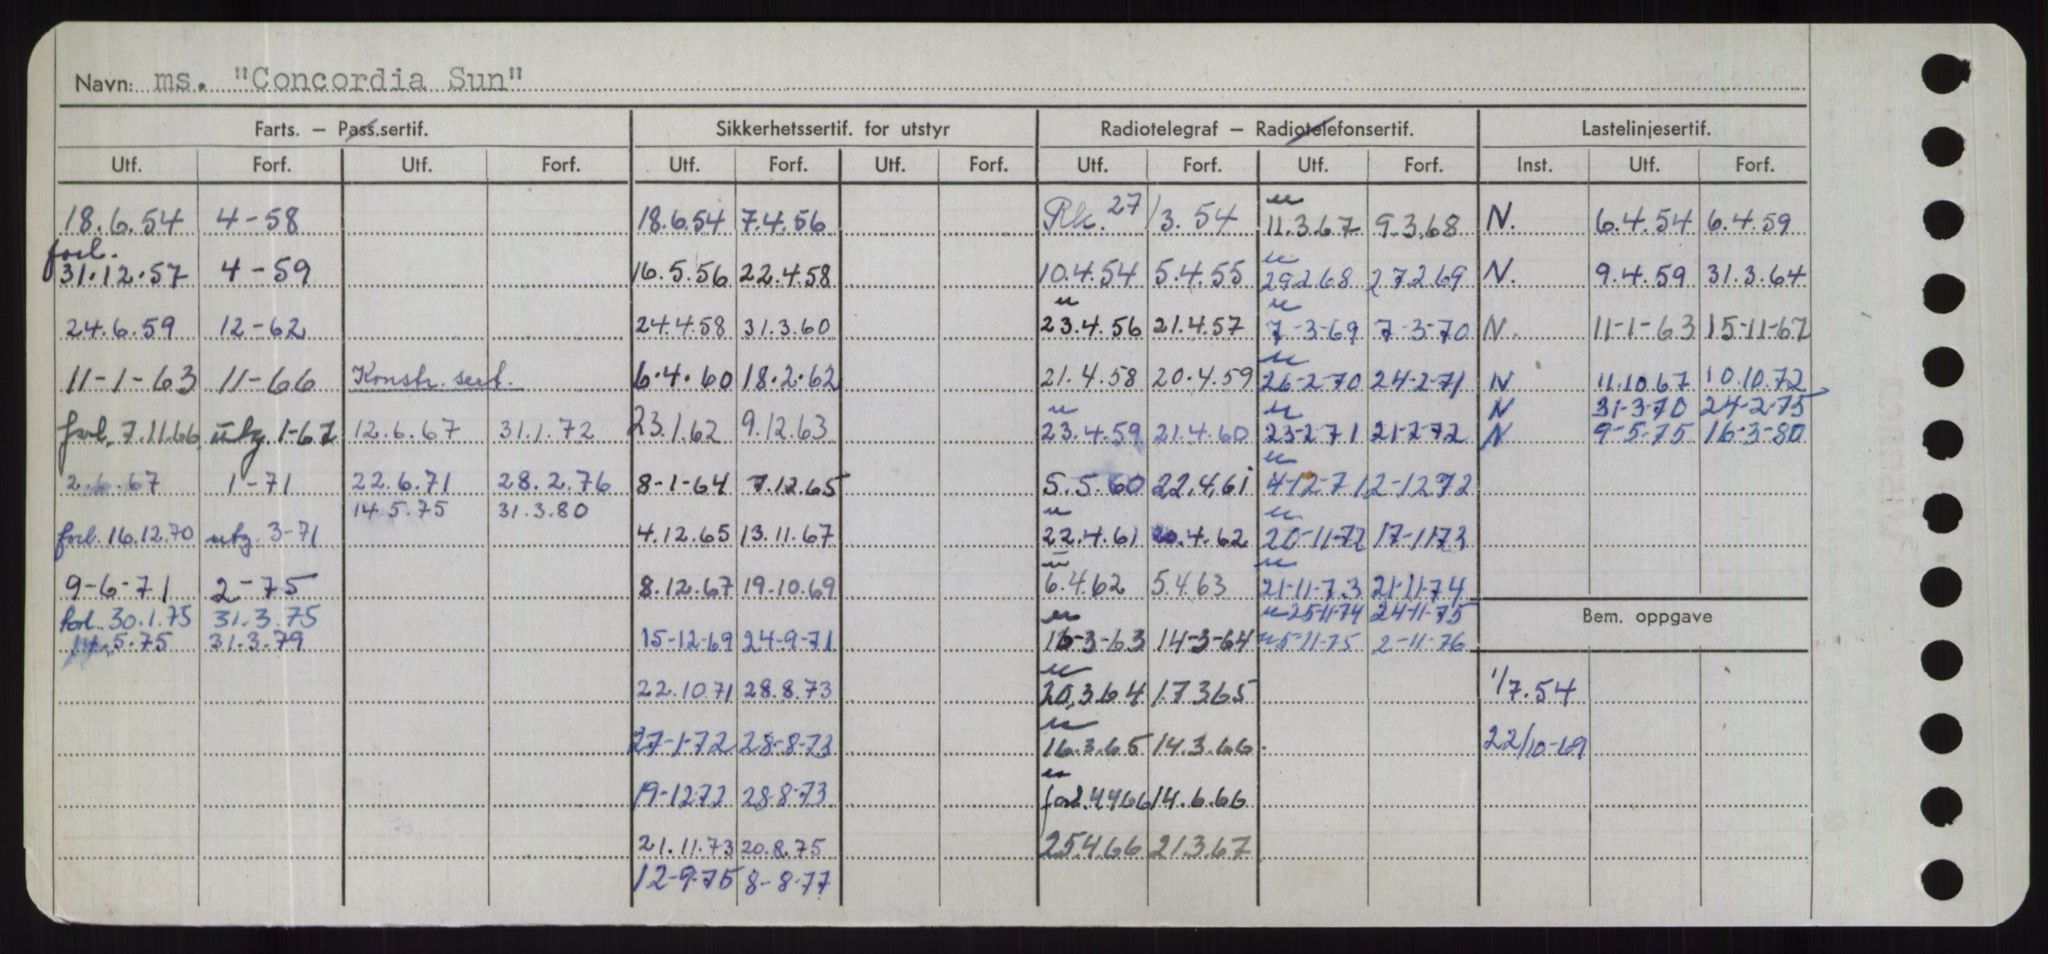 Navn: ms. "Concordia Sun"
Farts. – Pass.sertif. Sikkerhetssertif. for utstyr Radiotelegraf – Radiotelefonsertif. Lastelinjesertif.
Utf. Forf. Utf. Forf. Utf. Forf. Utf. Forf. Utf. Forf. Utf. Forf. Inst. Utf. Forf.
18.6.54 4-58 18.6.54 7.4.56 Rk. 27/3.54 u 11.3.67 9.3.68 N. 6.4.54 6.4.59
forl. 31.12.57 4-59 16.5.56 22.4.58 10.4.54 5.4.55 u 29.2.68 27.2.69 N. 9.4.59 31.3.64
24.6.59 12-62 24.4.58 31.3.60 u 23.4.56 21.4.57 u 7-3-69 7-3-70 N. 11-1-63 15-11-67
11-1-63 11-66 Konstr. sert. 6.4.60 18.2.62 21.4.58 20.4.59 u 26-2-70 24-2-71 N 11.10.67 10.10.72
N 31-3-70 24-2-75
forl. 7.11.66 utg. 1-67 12.6.67 31.1.72 23.1.62 9.12.63 u 23.4.59 21.4.60 u 23-2-71 21-2-72 N 9-5-75 16-3-80
2.6.67 1-71 22.6.71 28.2.76 8-1-64 7.12.65 5.5.60 22.4.61 u 4-12-71 2-12-72
14.5.75 31.3.80
forl. 16.12.70 utg. 3-71 4.12.65 13.11.67 u 22.4.61 20.4.62 u 20-11-72 17-11-73
9-6-71 2-75 8.12.67 19.10.69 u 6.4.62 5.4.63 u 21-11-73 21-11-74
forl. 30.1.75 31.3.75 u 25-11-74 24-11-75 Bem. oppgave
14.5.75 31.3.79 15-12-69 24-9-71 u 16-3-63 14-3-64 u 5-11-75 2-11-76
22.10.71 28.8.73 u 20.3.64 17.3.65 1/7.54
27-1-72 28-8-73 u 16.3.65 14.3.66 22/10-69
19-12-72 28-8-73 u forl. 4.4.66 14.6.66
21.11.73 20.8.75 25.4.66 21.3.67
12-9-75 8-8-77